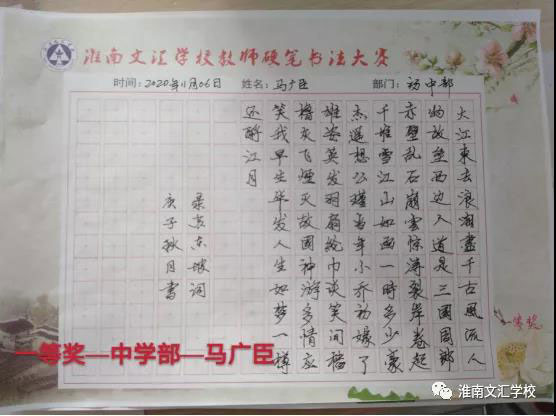 淮南文汇学校教师硬笔书法大赛
时间：2020年11月06日 姓名：马广臣 部门：初中部
大江東去浪淘盡千古風流人
物故壘西边人道是三國周郎
赤壁乱石崩雲惊涛裂岸卷起
千堆雪江山如画一時多少豪
杰遥想公瑾当年小乔初嫁了
雄姿英发羽扇纶巾谈笑间樯
橹灰飞煙灭故國神游多情应
笑我早生华发人生如梦一樽
还酹江月
录苏东坡词
庚子秋月書
一等奖
一等奖—中学部—马广臣
淮南文汇学校